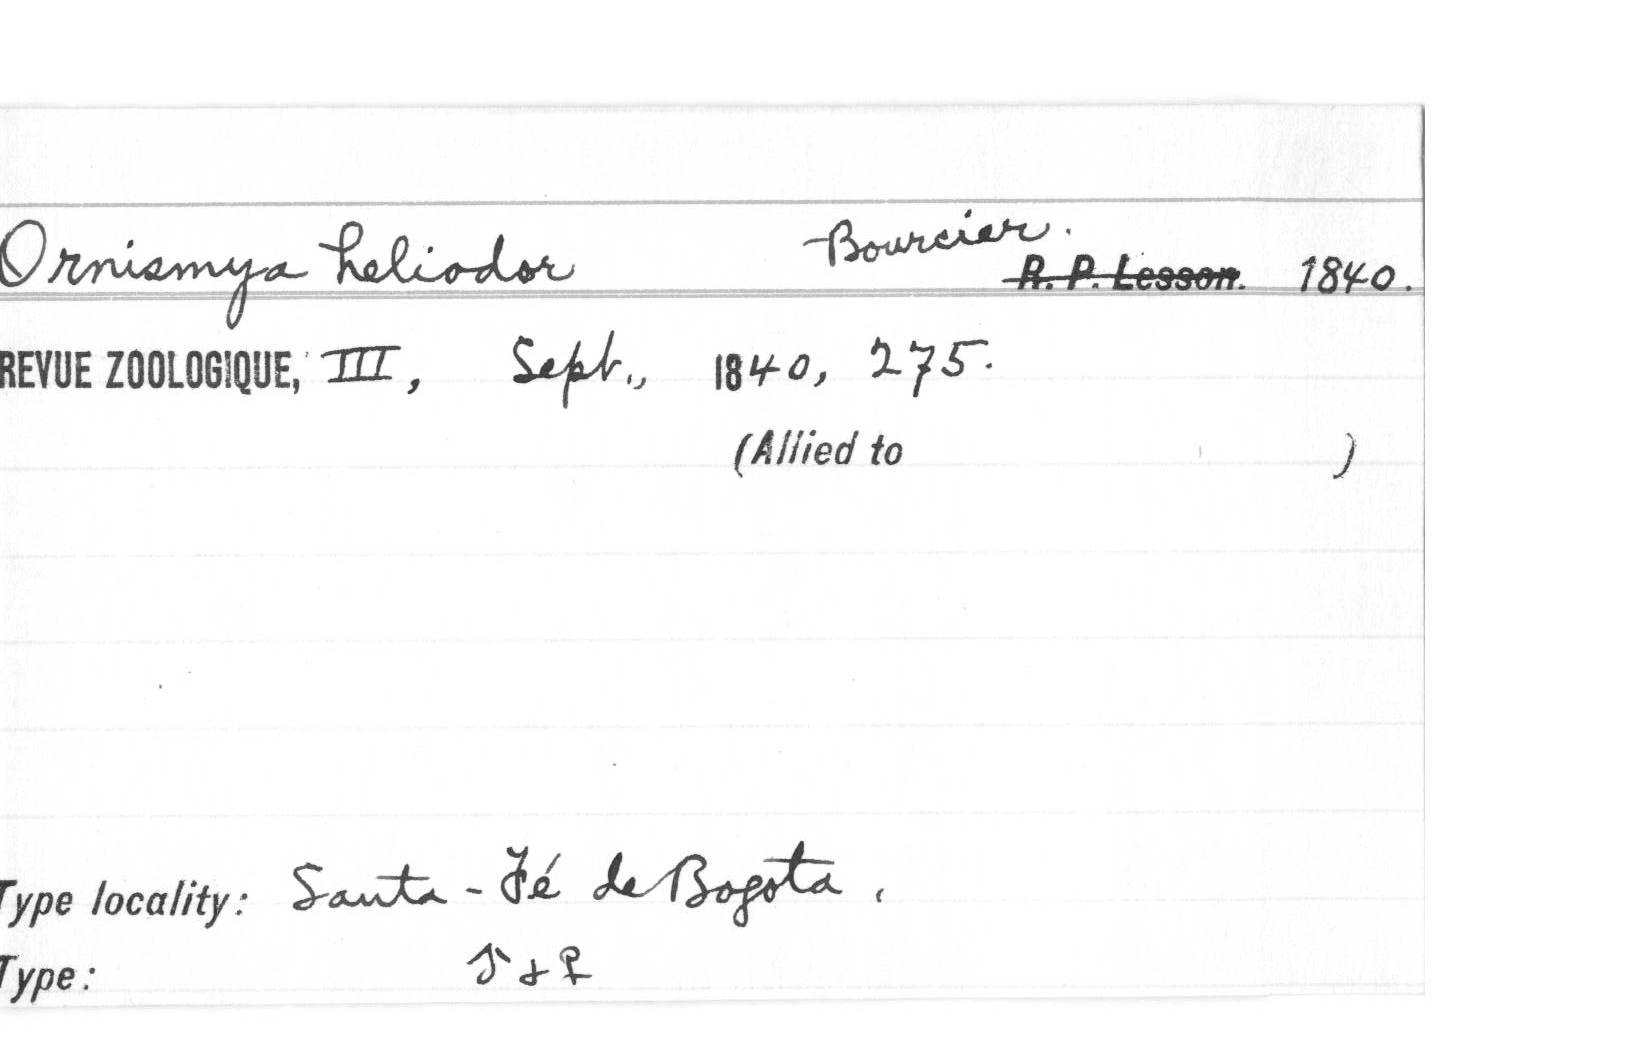 Ornismya heliodor Bourcier. R. P. Lesson. 1840.
REVUE ZOOLOGIQUE, III, Sept., 1840, 275.
(Allied to )
Type locality: Santa-Fé de Bogota.
Type: ♂ + ♀